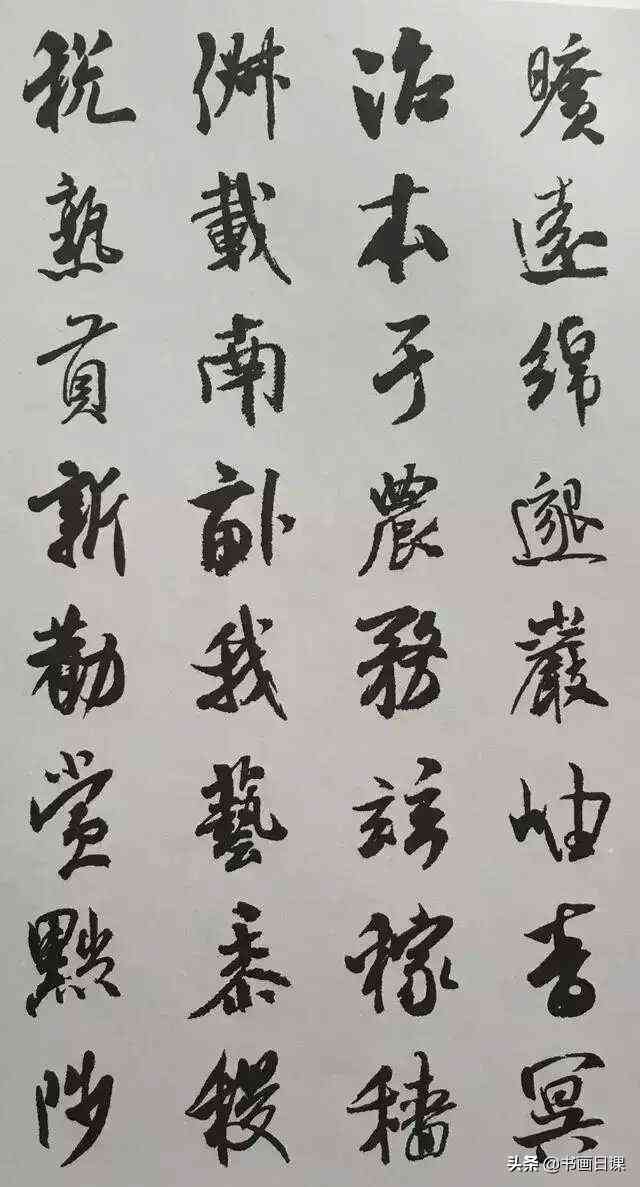 曠遠綿邈巖岫杳冥
治本于農務茲稼穡
俶載南畝我藝黍稷
稅熟貢新勸賞黜陟
头条 @书画日课